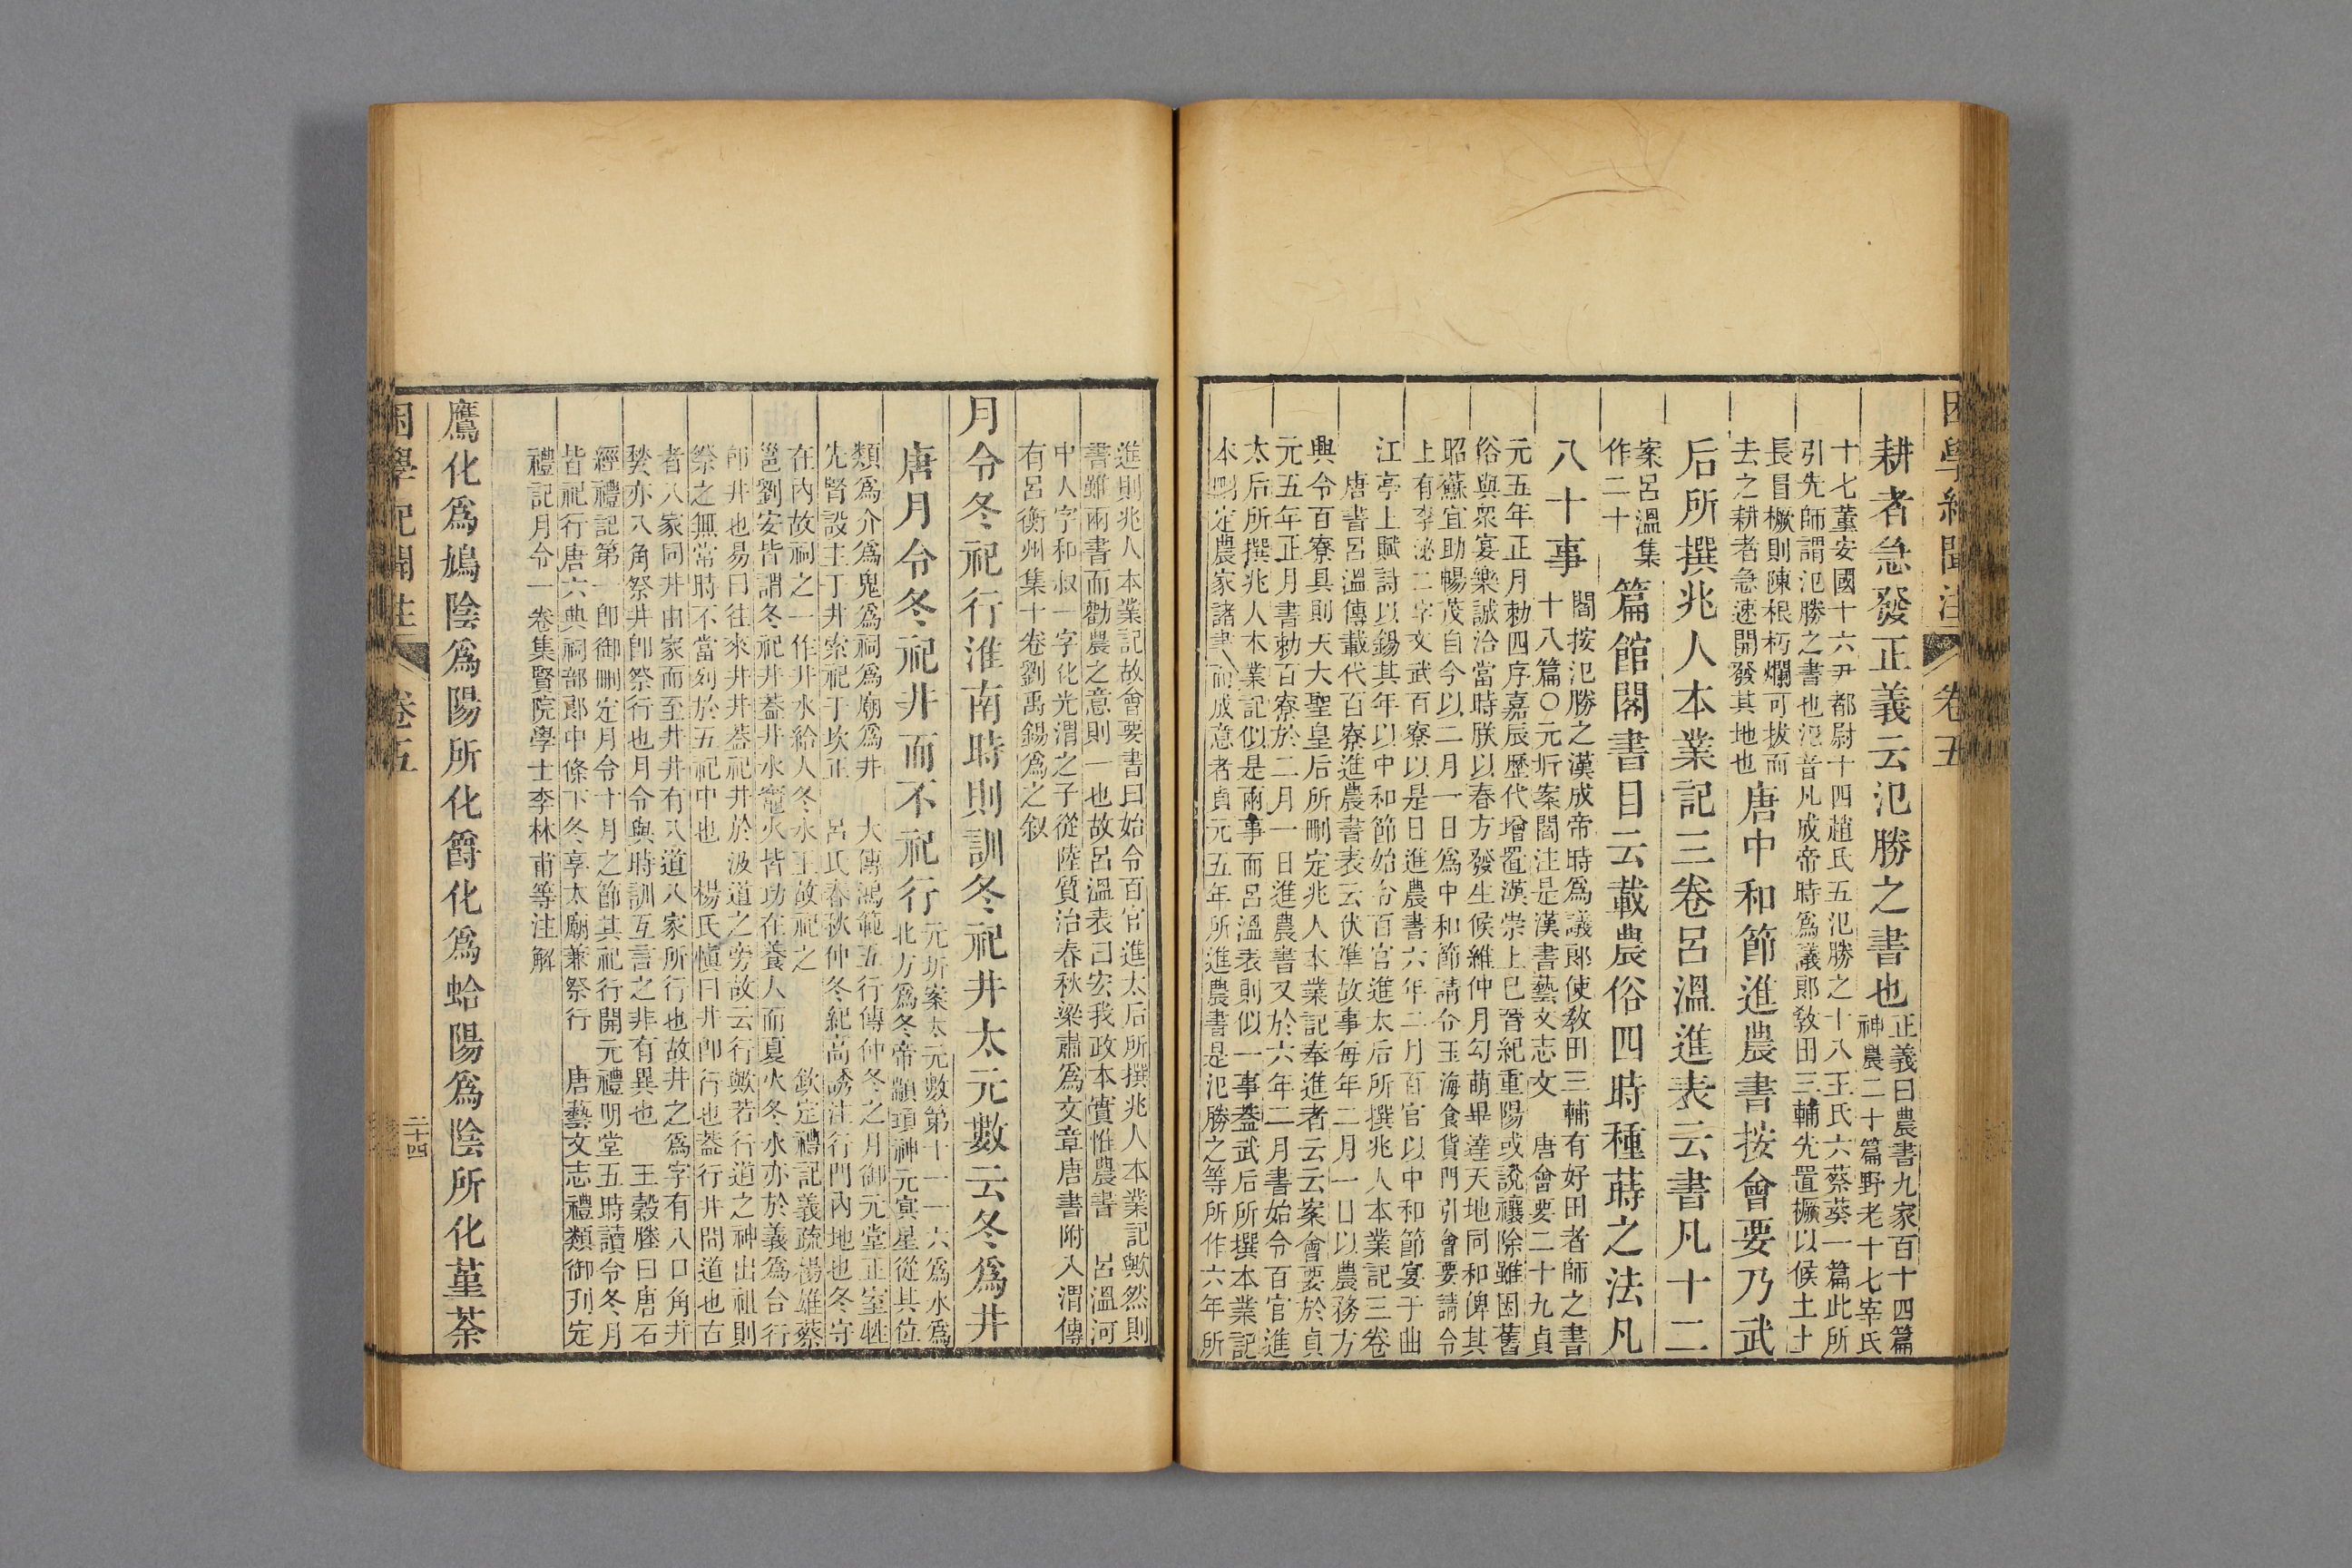 困學紀聞注 卷五
耕者急發正義云氾勝之書也
正義曰農書九家百十四篇
神農二十篇野老十七宰氏
十七董安國十六尹都尉十四趙氏五氾勝之十八王氏六蔡葵一篇此所
引先師謂氾勝之書也氾音凡成帝時爲議郎敎田三輔先置橛以候土土
長冒橛則陳根朽爛可拔而
去之耕者急速開發其地也
唐中和節進農書按會要乃武
后所撰兆人本業記三卷呂溫進表云書凡十二
案呂溫集
作二十
篇館閣書目云載農俗四時種蒔之法凡
八十事
閻按氾勝之漢成帝時爲議郎使敎田三輔有好田者師之書
十八篇〇元圻案閻注是漢書藝文志文 唐會要二十九貞
元五年正月勅四序嘉辰歷代增置漢崇上巳晉紀重陽或說禳除雖因舊
俗與衆宴樂誠洽當時朕以春方發生候維仲月勾萌畢達天地同和俾其
昭蘇宜助暢茂自今以二月一日爲中和節請令玉海食貨門引會要請令
上有李泌二字文武百寮以是日進農書六年二月百官以中和節宴于曲
江亭上賦詩以錫其年以中和節始令百官進太后所撰兆人本業記三卷
唐書呂溫傳載代百寮進農書表云伏準故事每年二月一日以農務方
興令百寮具則天大聖皇后所刪定兆人本業記奉進者云云案會要於貞
元五年正月書勅百寮於二月一日進農書又於六年二月書始令百官進
太后所撰兆人本業記似是兩事而呂溫表則似一事蓋武后所撰本業記
本刪定農家諸書而成意者貞元五年所進農書是氾勝之等所作六年所
進則兆人本業記故會要書曰始令百官進太后所撰兆人本業記歟然則
書雖兩書而勸農之意則一也故呂溫表曰宏我政本實惟農書 呂溫河
中人字和叔一字化光渭之子從陸質治春秋梁肅爲文章唐書附入渭傳
有呂衡州集十卷劉禹錫爲之叙
月令冬祀行淮南時則訓冬祀井太元數云冬爲井
唐月令冬祀井而不祀行
元圻案太元數第十一一六爲水爲
北方爲冬帝顓頊神元冥星從其位
類爲介爲鬼爲祠爲廟爲井 大傳鴻範五行傳仲冬之月御元堂正室牲
先腎設主于井索祀于坎正 呂氏春秋仲冬紀高誘注行門內地也冬守
在內故祠之一作井水給人冬水王故祀之 欽定禮記義疏楊雄蔡
邕劉安皆謂冬祀井蓋井水竈火皆功在養人而夏火冬水亦於義爲合行
卽井也易曰往來井井蓋祀井於汲道之旁故云行歟若行道之神出祖則
祭之無常時不當列於五祀中也 楊氏愼曰井卽行也蓋行井間道也古
者八家同井由家而至井井有八道八家所行也故井之爲字有八口角井
甃亦八角祭井卽祭行也月令與時訓互言之非有異也 王穀塍曰唐石
經禮記第一卽御刪定月令十月之節其祀行開元禮明堂五時讀令冬月
皆祀行唐六典祠部郎中條下冬享太廟兼祭行 唐藝文志禮類御刋定
禮記月令一卷集賢院學士李林甫等注解
鷹化爲鳩陰爲陽所化爵化爲蛤陽爲陰所化堇荼
困學紀聞注 卷五 二十四